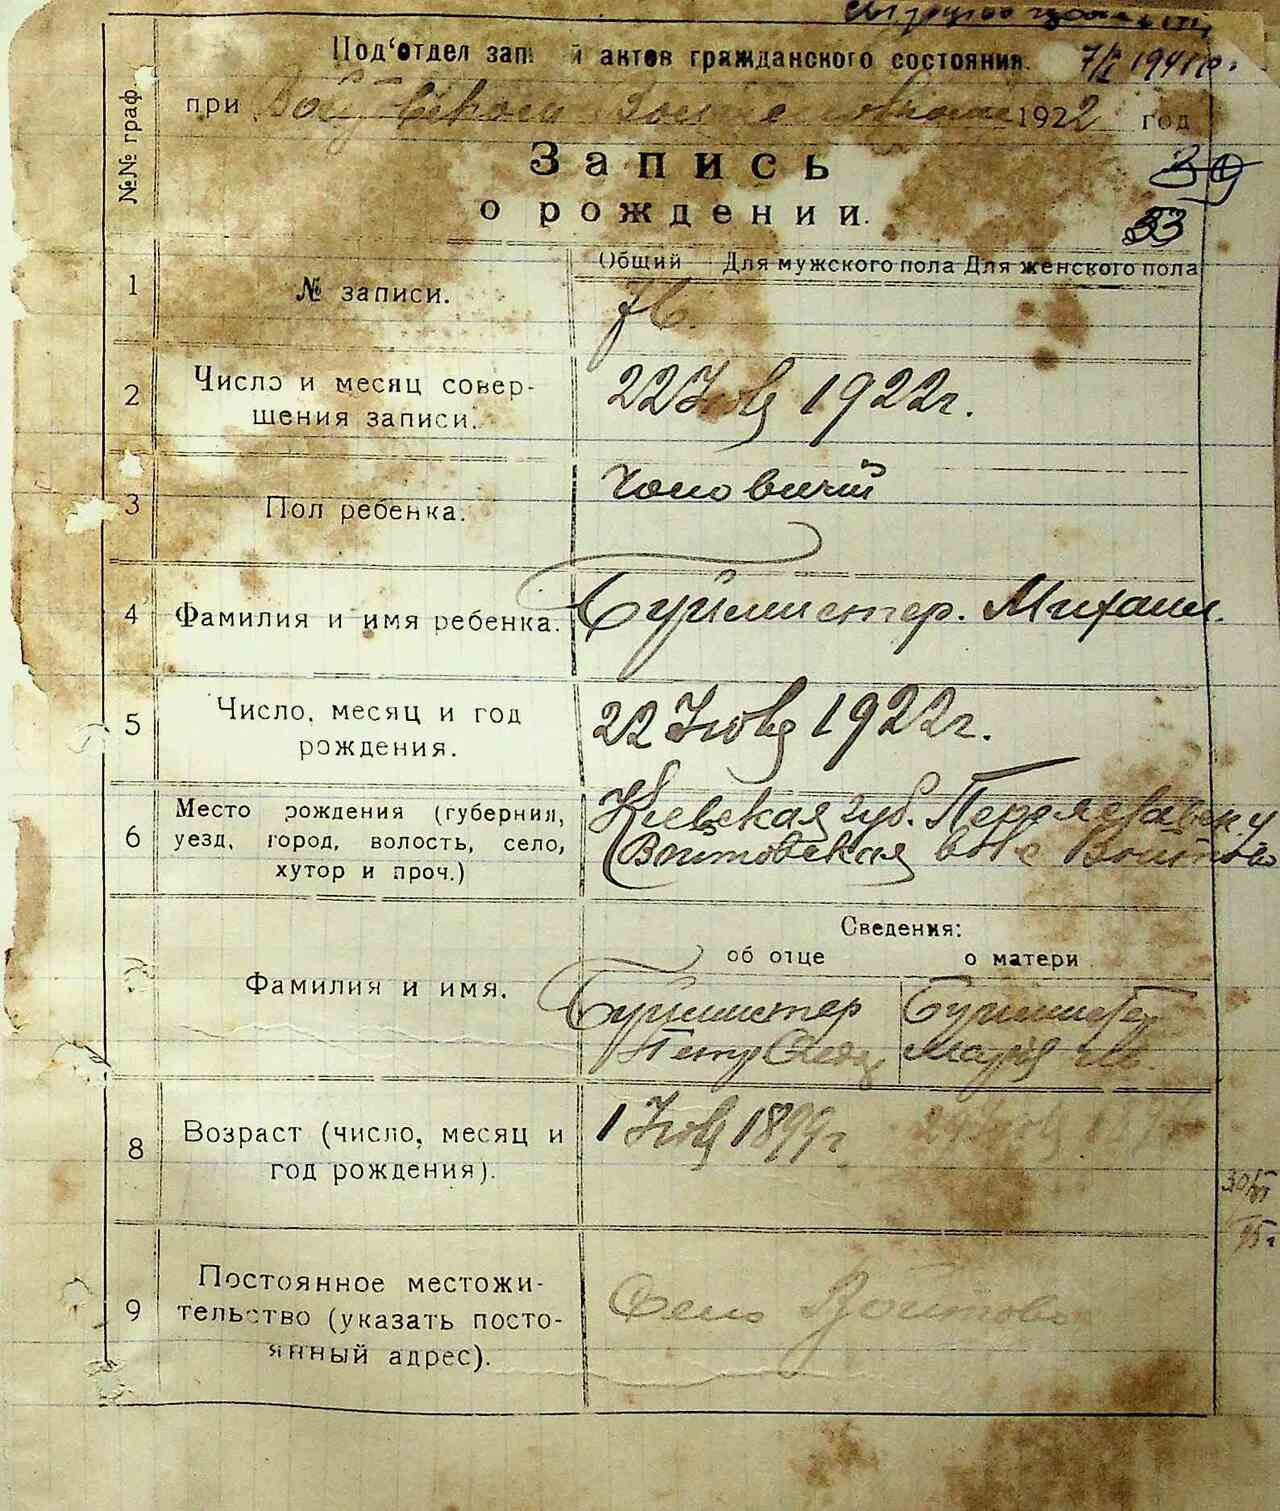 Под'отдел записей актов гражданского состояния.
7/I 1941 г.
при 1922 год
№№ граф.
Запись
39
о рождении.
33
Общий Для мужского пола Для женского пола
1 № записи.
2 Число и месяц совер-
шения записи.
22 Июля 1922 г.
3 Пол ребенка.
Чоловичий
4 Фамилия и имя ребенка.
Бурмистер. Михаил.
5 Число, месяц и год
рождения.
22 Июля 1922 г.
6 Место рождения (губерния,
уезд, город, волость, село,
хутор и проч.)
Киевская губ. Переяславск. у
Войтовская вол с Войтово
Сведения:
об отце о матери
7 Фамилия и имя.
Бурмистер
Петр
Бурмистер
Мария
8 Возраст (число, месяц и
год рождения).
1 Июля 1899 г
9 Постоянное местожи-
тельство (указать посто-
янный адрес).
Село Войтово